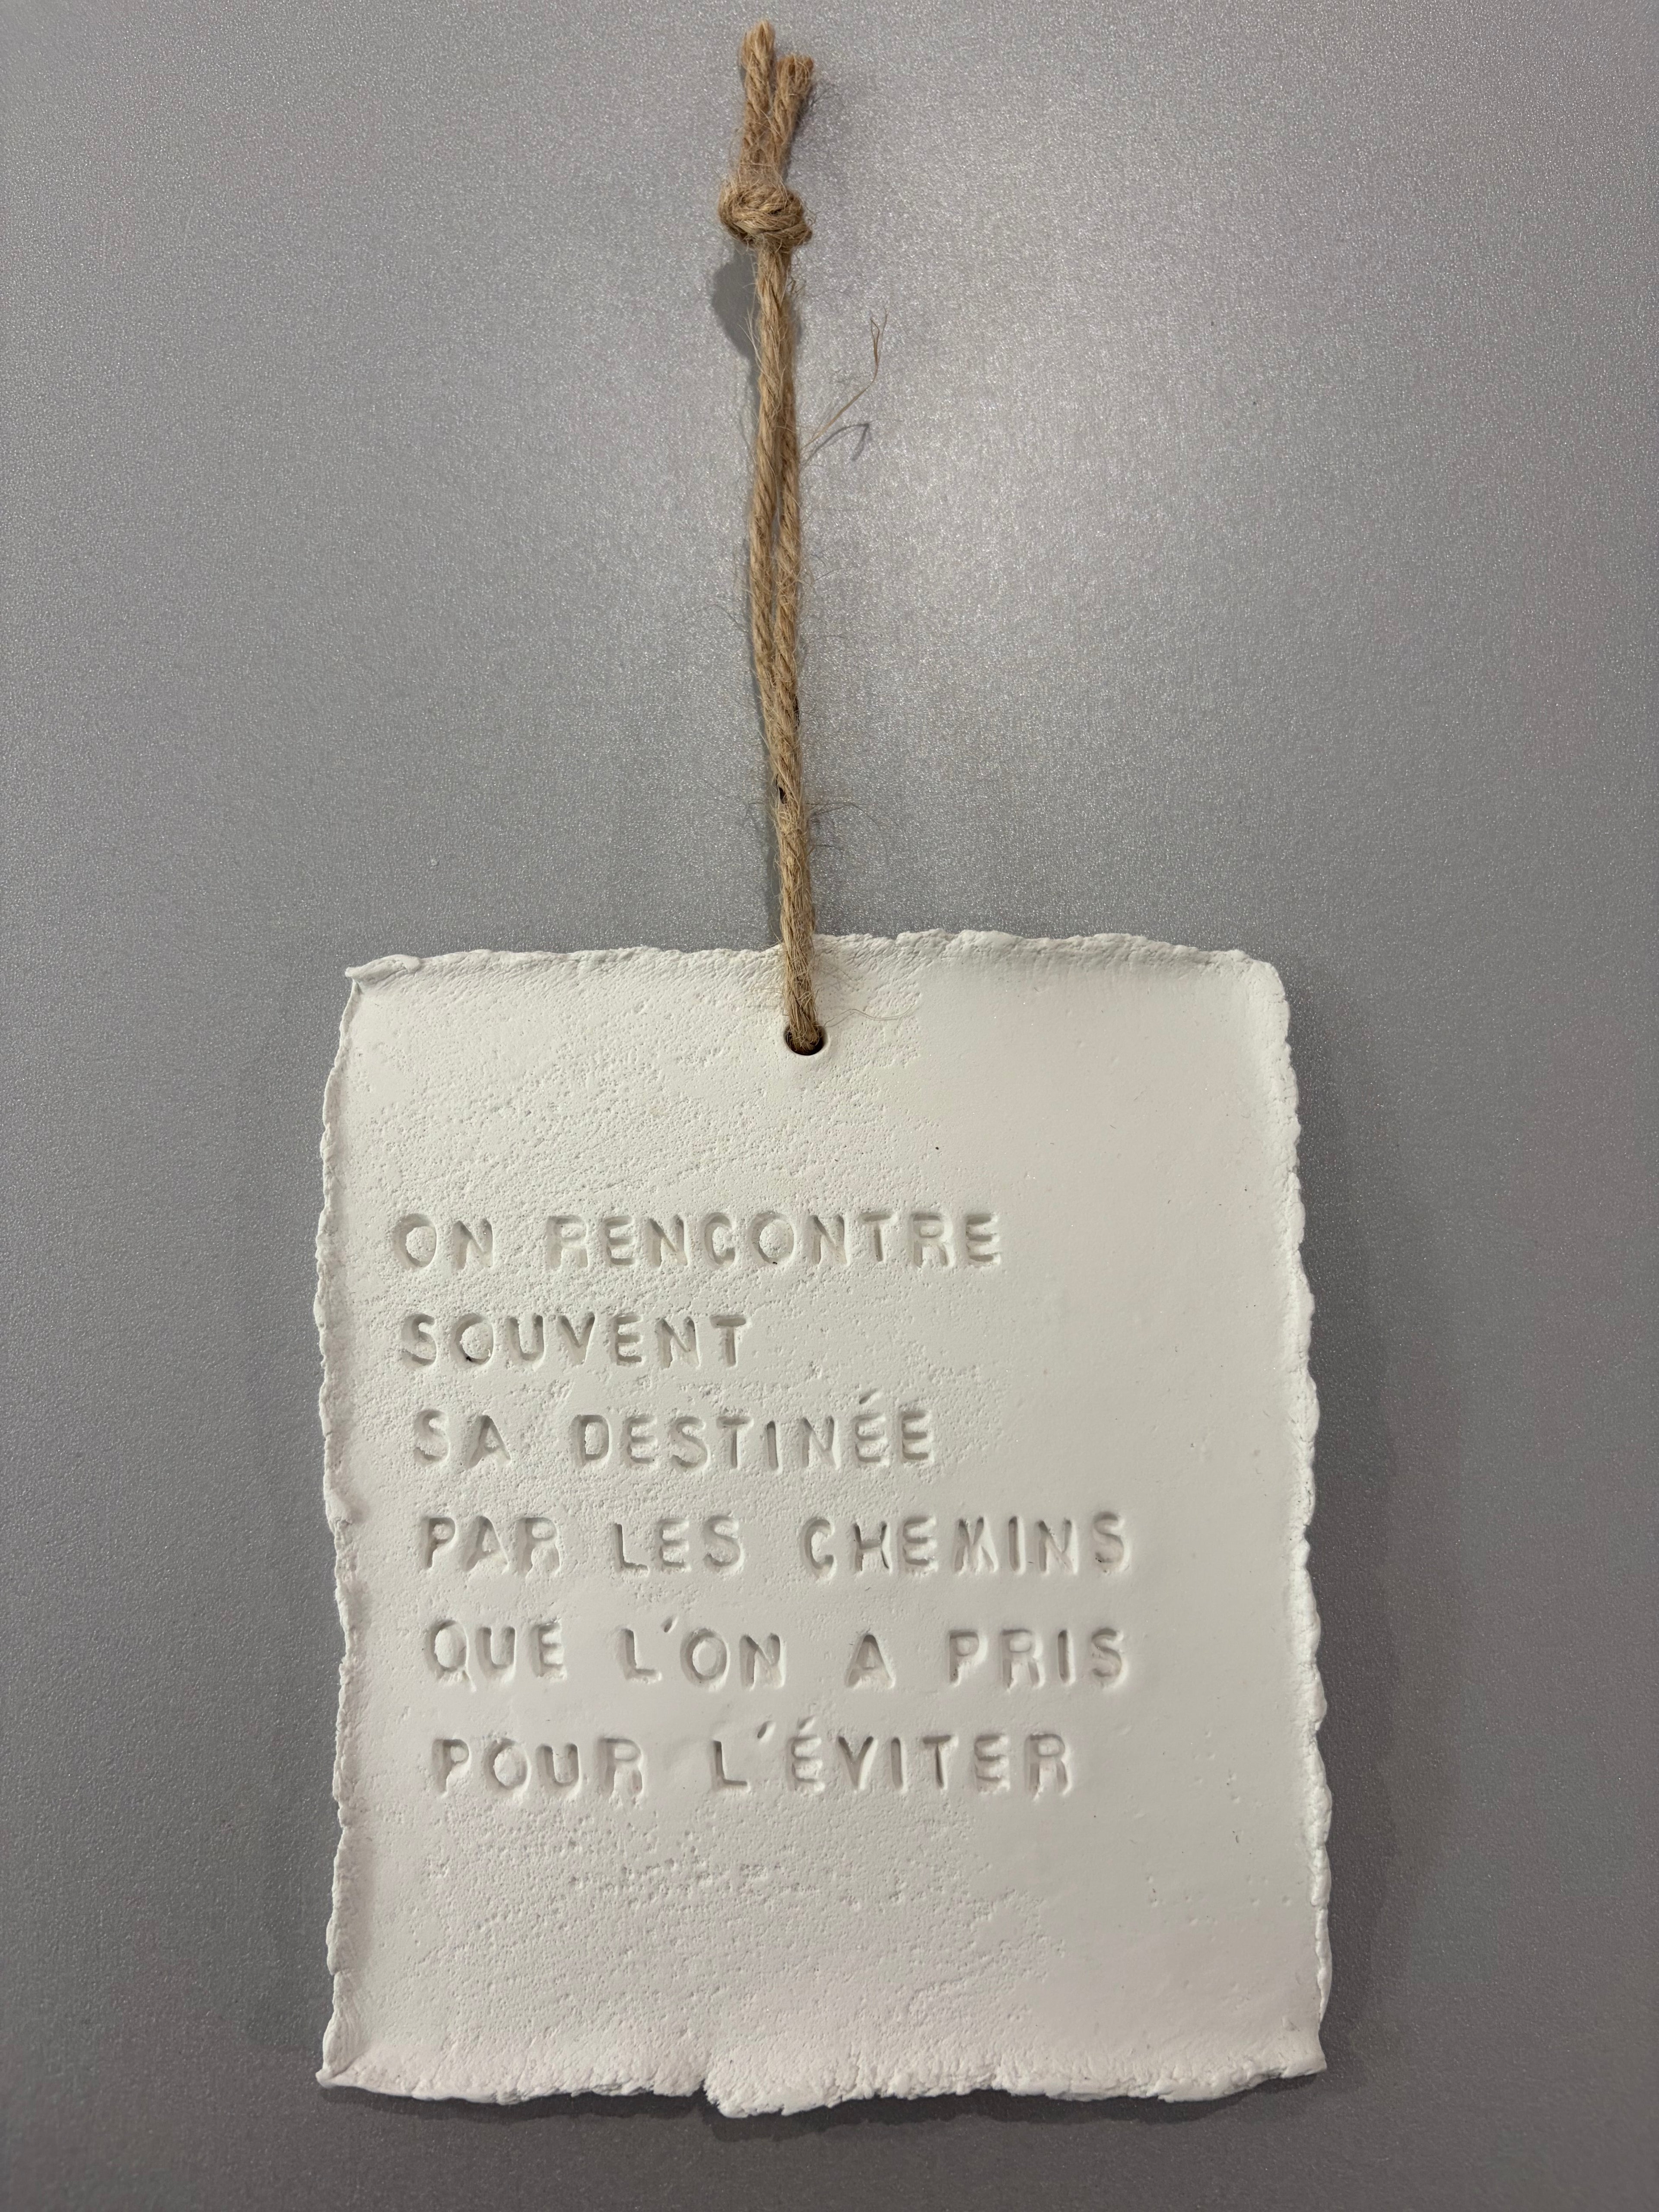 ON RENCONTRE
SOUVENT
SA DESTINÉE
PAR LES CHEMINS
QUE L'ON A PRIS
POUR L'ÉVITER